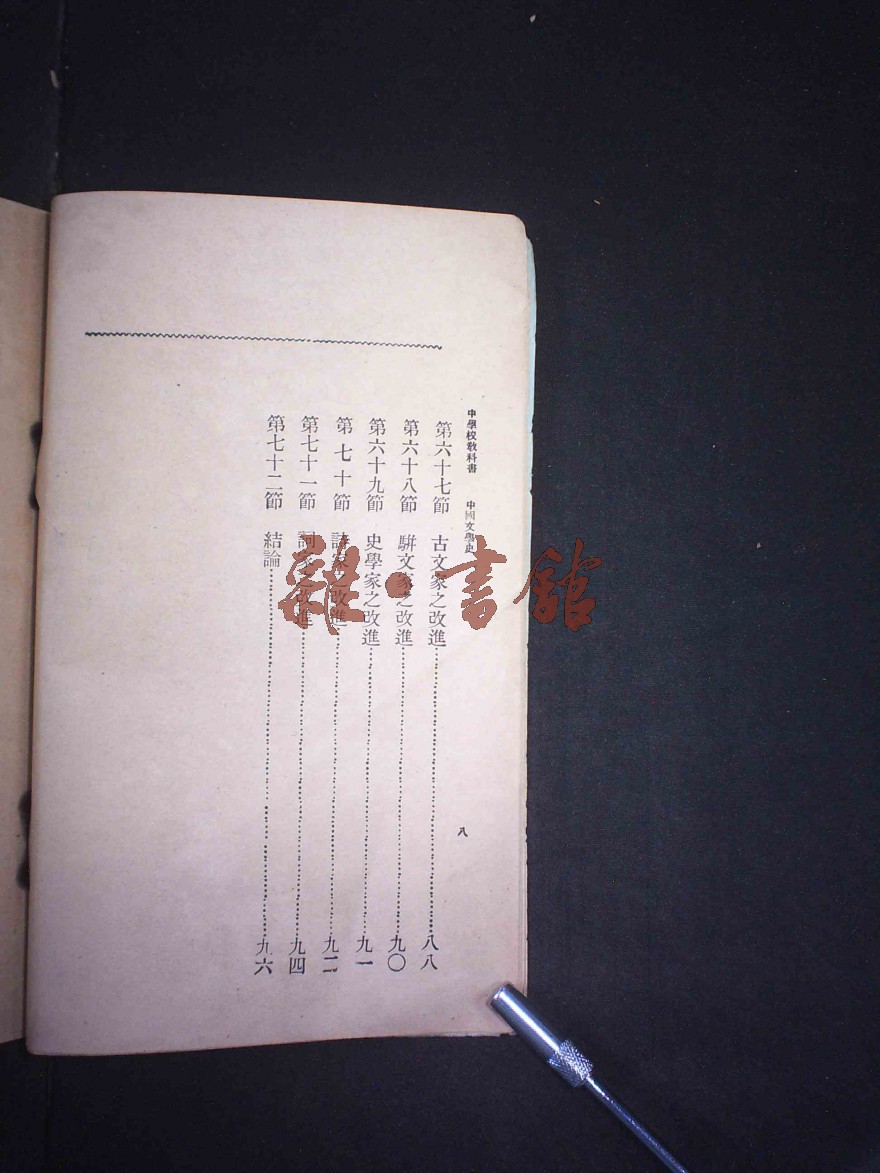 中學校教科書　中國文學史
八
第六十七節　古文家之改進…………八八
第六十八節　駢文家之改進…………九〇
第六十九節　史學家之改進…………九一
第七十節　詩家之改進…………九二
第七十一節　詞家之改進…………九四
第七十二節　結論…………九六
雜·書館